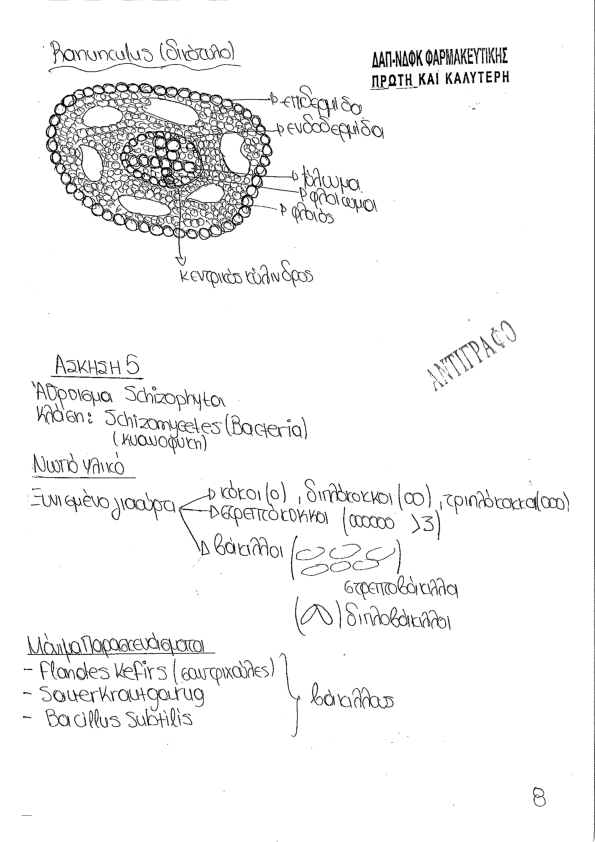 Ranunculus (δικότυλο)
ΔΑΠ-ΝΔΦΚ ΦΑΡΜΑΚΕΥΤΙΚΗΣ
ΠΡΩΤΗ ΚΑΙ ΚΑΛΥΤΕΡΗ
επιδερμίδα
ενδοδερμίδα
ξύλωμα
φλοίωμα
φλοιός
κεντρικός κύλινδρος
ΑΝΤΙΓΡΑΦΟ
ΑΣΚΗΣΗ 5
Άθροισμα Schizophyta
Κλάση: Schizomycetes (Bacteria)
(κυανοφύκη)
Νωπό υλικό
Ξυνισμένο γιαούρτι
κόκοι (ο), διπλόκοκκοι (οο), τριπλόκοκκοι (οοο)
στρεπτόκοκκοι (οοοοοο >3)
βάκιλλοι
στρεπτοβάκιλλα
διπλοβάκιλλοι
Μόνιμα Παρασκευάσματα
- Flandes Kefirs
- Sauerkrautgarug
- Bacillus Subtilis
βάκιλλος
8